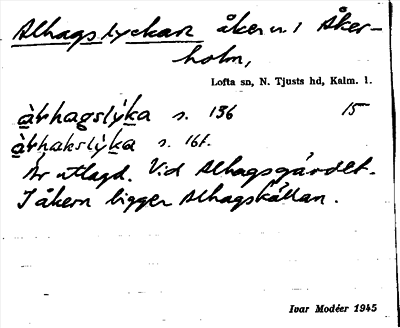 Alhagslyckan åker n. i Åker-
holm,
Lofta sn, N. Tjusts hd, Kalm. l.
àrhagslýka s. 136 15-
àrhakslýka s. 161.
Är utlagd. Vid Alhagsgärdet.
I åkern ligger Alhagskällan.
Ivar Modéer 1945